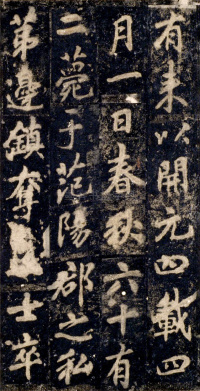 有来以開元四載四
月一日春秋六十有
二薨于范陽郡之私
苐邊鎮奪士卒